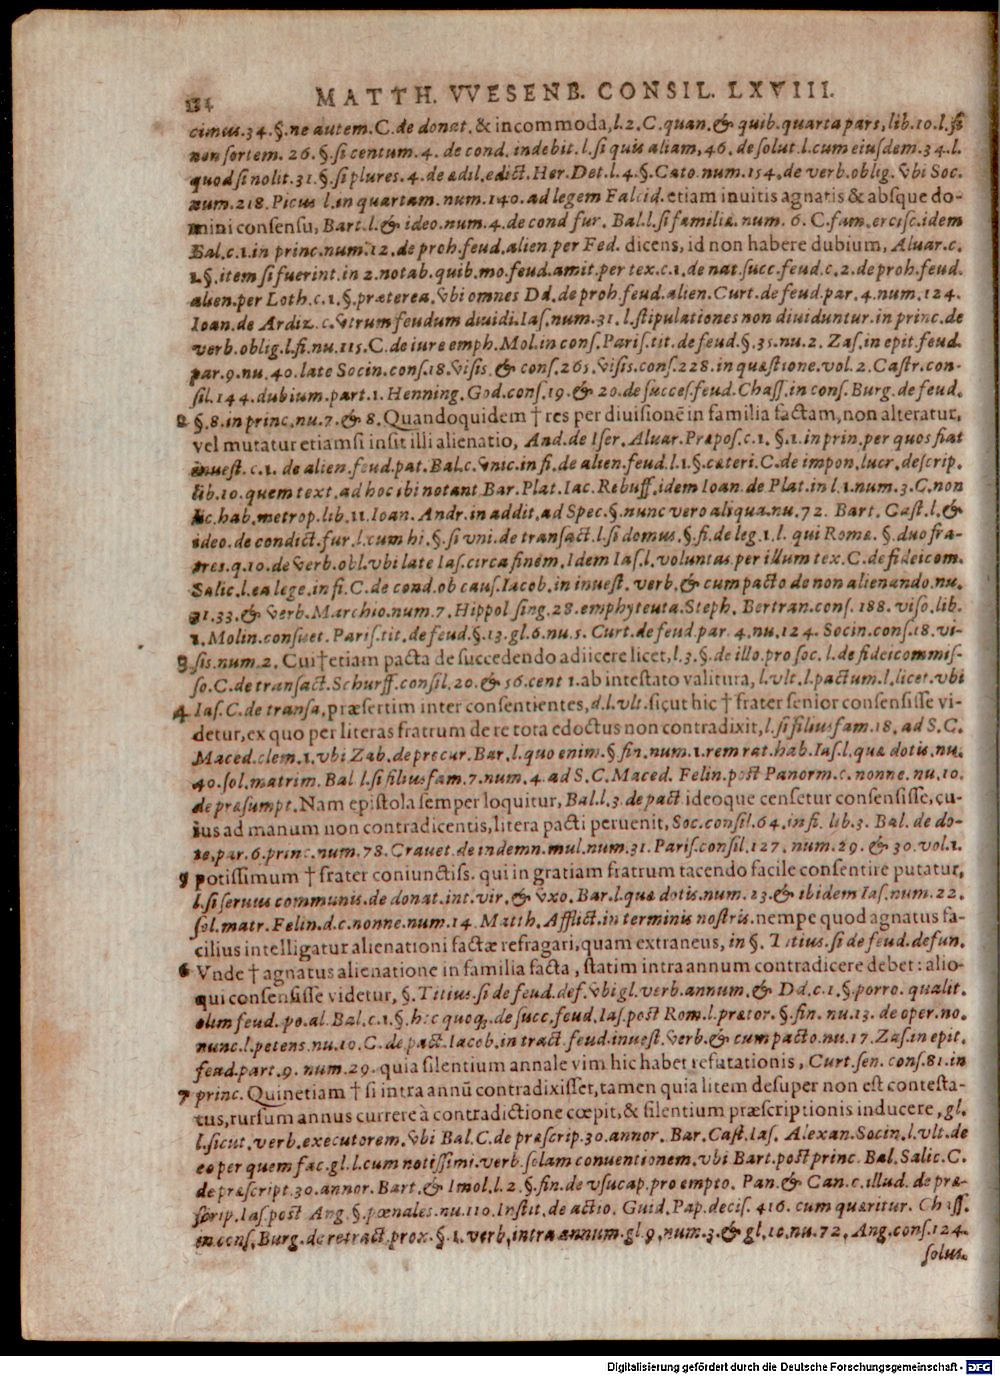 134 MATTH. VVESENB. CONSIL. LXVIII.
cimus.34.§.ne autem.C.de donat. & incommoda, l.2.C.quan.& quib.quarta pars, lib.10.l.si
non sortem. 26.§.si centum.4. de cond. indebit.l.si quis aliam, 46. de solut.l.cum eiusdem.34.l.
quod si nolit.31.§.si plures.4.de ædil.edict.Her.Det.l.4.§.Cato.num.154.de verb.oblig.vbi Soc.
num.218.Picus l.in quartam.num.140.ad legem Falcid. etiam inuitis agnatis & absque do-
mini consensu, Bart.l.& ideo.num.4.de cond fur. Bal.l.si familiæ.num. 6.C.fam.ercisc.idem
Bal.c.1.in princ.num.12.de proh.feud.alien per Fed. dicens, id non habere dubium, Aluar.c.
1.§.item si fuerint.in 2.notab.quib.mo.feud.amit.per tex.c.1.de nat.succ.feud.c.2.de proh.feud.
alien.per Loth.c.1.§.præterea.vbi omnes Dd.de proh.feud.alien.Curt.de feud.par.4.num.124.
Ioan.de Ardiz.c.vtrum feudum diuidi.Ias.num.31.l.stipulationes non diuiduntur.in princ.de
verb.oblig.l.fi.nu.115.C.de iure emph.Mol.in cons.Paris.tit.de feud.§.35.nu.2. Zas.in epit.feud.
par.9.nu.40.late Socin.cons.18.visis.& cons.265.visis.cons.228.in quæstione.vol.2.Castr.con-
sil.144.dubium.part.1.Henning.God.cons.19.& 20.de succes.feud.Chass.in cons.Burg.de feud.
2 §.8.in princ.nu.7.& 8. Quandoquidem † res per diuisionē in familia factam, non alteratur,
vel mutatur etiamsi insit illi alienatio, And.de Iser.Aluar.Præpos.c.1.§.1.in prin.per quos fiat
inuest.c.1.de alien.feud.pat.Bal.c.vnic.in fi.de alien.feud.l.1.§.cæteri.C.de impon.lucr.descrip.
lib.10.quem text.ad hoc ibi notant Bar.Plat.Iac.Rebuff.idem Ioan.de Plat.in l.1.num.3.C.non
lic.hab.metrop.lib.11.Ioan. Andr.in addit.ad Spec.§.nunc vero aliqua.nu.72. Bart. Cast.l.&
ideo.de condict.fur.l.cum hi.§.si vni.de transact.l.si domus.§.fi.de leg.1.l. qui Romæ.§.duo fra-
tres.q.10.de verb.obl.vbi late Ias.circa finem.Idem Ias.l.voluntas.per illum tex.C.de fideicom.
Salic.l.ea lege.in fi.C.de cond.ob caus.Iacob.in inuest. verb.& cum pacto de non alienando.nu.
31.33.& verb.Marchio.num.7.Hippol sing.28.emphyteuta.Steph. Bertran.cons. 188. viso.lib.
1.Molin.consuet. Paris.tit.de feud.§.13.gl.6.nu.5. Curt.de feud.par.4.nu.124. Socin.cons.18.vi-
3 sis.num.2. Cui † etiam pacta de succedendo adiicere licet, l.3.§.de illo.pro soc.l.de fideicommis-
so.C.de transact.Schurff.consil.20.& 56.cent 1. ab intestato valitura, l.vlt.l.pactum.l.licet.vbi
4 Ias.C.de transa. præsertim inter consentientes, d.l.vlt. sicut hic † frater senior consensisse vi-
detur, ex quo per literas fratrum de re tota edoctus non contradixit, l.si filiusfam.18. ad S.C.
Maced.clem.1.vbi Zab.de procur.Bar.l.quo enim.§.fin.num.1.rem rat.hab.Ias.l.quæ dotis.nu.
40.sol.matrim. Bal l.si filiusfam.7.num.4.ad S.C.Maced. Felin.post Panorm.c.nonne.nu.10.
de præsumpt. Nam epistola semper loquitur, Bal.l.3.de pact ideoque censetur consensisse, cu-
ius ad manum non contradicentis, litera pacti peruenit, Soc.consil.64.in fi. lib.3. Bal. de do-
te,par.6.princ.num.78.Crauet.de indemn.mul.num.31.Paris.consil.127.num.29.& 30.vol.1.
5 potissimum † frater coniunctiss. qui in gratiam fratrum tacendo facile consentire putatur,
l.si seruus communis.de donat.int.vir.& vxo.Bar.l.quæ dotis.num.23.& ibidem Ias.num.22.
sol.matr.Felin.d.c.nonne.num.14. Matth.Afflict.in terminis nostris. nempe quod agnatus fa-
cilius intelligatur alienationi factæ refragari, quam extraneus, in §. Titius.si de feud.defun.
6 Vnde † agnatus alienatione in familia facta, statim intra annum contradicere debet: alio-
qui consensisse videtur, §.Titius.si de feud.def.vbi gl.verb.annum.& Dd.c.1.§.porro.qualit.
olim feud. po.al.Bal.c.1.§.hic quoq;.de succ.feud.Ias.post Rom.l.prætor.§.fin. nu.13. de oper.no.
nunc.l.petens.nu.10.C.de pact.Iacob.in tract.feud.inuest.verb.& cum pacto.nu.17.Zas.in epit.
feud.part.9. num.29. quia silentium annale vim hic habet refutationis, Curt.sen. cons.81.in
7 princ. Quinetiam † si intra annū contradixisset, tamen quia litem desuper non est contesta-
tus, rursum annus currere à contradictione cœpit, & silentium præscriptionis inducere, gl.
l.sicut.verb.executorem.vbi Bal.C.de præscrip.30.annor.Bar.Cast.Ias. Alexan.Socin.l.vlt.de
eo per quem fac.gl.l.cum notissimi.verb.solam conuentionem.vbi Bart.post princ. Bal.Salic.C.
de præscript.30.annor.Bart.& Imol.l.2.§.fin.de vsucap.pro empto. Pan.& Can.c.illud.de præ-
scrip.Ias.post Ang.§.pœnales.nu.110.Instit.de actio.Guid.Pap.decis.416.cum quæritur. Chass.
in cons.Burg.de retract.prox.§.1.verb.intra annum.gl.9.num.3.& gl.10.nu.72. Ang.cons.124.
solus.
Digitalisierung gefördert durch die Deutsche Forschungsgemeinschaft - DFG